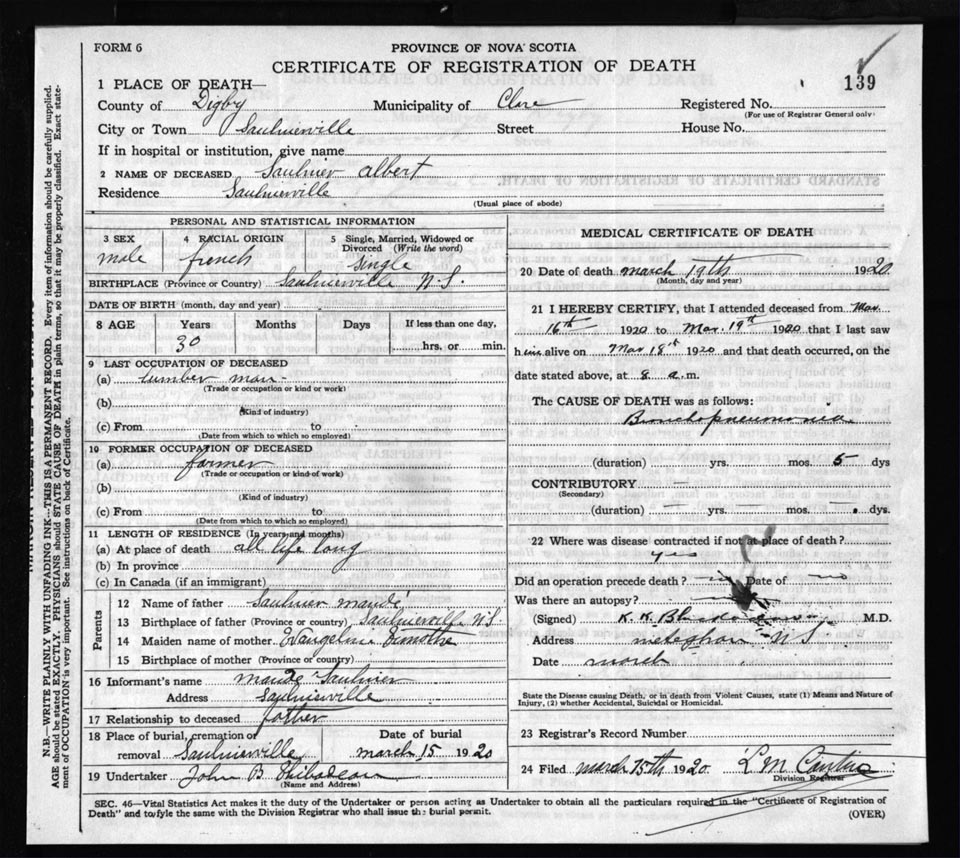 FORM 6
PROVINCE OF NOVA SCOTIA
CERTIFICATE OF REGISTRATION OF DEATH
139
1 PLACE OF DEATH—
County of Digby Municipality of Clare Registered No.
(For use of Registrar General only)
City or Town Saulnierville Street House No.
If in hospital or institution, give name
2 NAME OF DECEASED Saulnier albert
Residence Saulnierville
(Usual place of abode)
PERSONAL AND STATISTICAL INFORMATION
3 SEX 4 RACIAL ORIGIN 5 Single, Married, Widowed or Divorced (Write the word)
male french single
BIRTHPLACE (Province or Country) Saulnierville N.S.
DATE OF BIRTH (month, day and year)
8 AGE Years Months Days If less than one day,
30 hrs. or min.
9 LAST OCCUPATION OF DECEASED
(a) lumber man
(Trade or occupation or kind or work)
(b)
(Kind of industry)
(c) From to
(Date from which to which so employed)
10 FORMER OCCUPATION OF DECEASED
(a) farmer
(Trade or occupation or kind of work)
(b)
(Kind of industry)
(c) From to
(Date from which to which so employed)
11 LENGTH OF RESIDENCE (In years and months)
(a) At place of death all life long
(b) In province
(c) In Canada (if an immigrant)
Parents
12 Name of father Saulnier mande
13 Birthplace of father (Province or country) Saulnierville N.S.
14 Maiden name of mother Evangeline
15 Birthplace of mother (Province or country)
16 Informant's name mande Saulnier
Address Saulnierville
17 Relationship to deceased father
18 Place of burial, cremation or removal Saulnierville
Date of burial march 15 1920
19 Undertaker John B Thibodeau
(Name and Address)
MEDICAL CERTIFICATE OF DEATH
20 Date of death march 19th 1920
(Month, day and year)
21 I HEREBY CERTIFY, that I attended deceased from Mar.
16th 1920 to Mar. 19th 1920 that I last saw
him alive on Mar 18th 1920 and that death occurred, on the
date stated above, at 8 a.m.
The CAUSE OF DEATH was as follows:
Bronchopneumonia
(duration) yrs. mos. 5 dys
CONTRIBUTORY —
(Secondary)
(duration) — yrs. — mos. dys.
22 Where was disease contracted if not at place of death?
yes
Did an operation precede death? Date of no
Was there an autopsy?
(Signed) M.D.
Address meteghan N S
Date march
State the Disease causing Death, or in death from Violent Causes, state (1) Means and Nature of
Injury, (2) whether Accidental, Suicidal or Homicidal.
23 Registrar's Record Number
24 Filed march 15th 1920. L M
Division Registrar
SEC. 46—Vital Statistics Act makes it the duty of the Undertaker or person acting as Undertaker to obtain all the particulars required in the "Certificate of Registration of
Death" and to file the same with the Division Registrar who shall issue the burial permit.
(OVER)
N.B.—WRITE PLAINLY WITH UNFADING INK—THIS IS A PERMANENT RECORD. Every item of information should be carefully supplied.
AGE should be stated EXACTLY. PHYSICIANS should STATE CAUSE OF DEATH in plain terms, so that it may be properly classified. Exact state-
ment of OCCUPATION is very important. See instructions on back of Certificate.